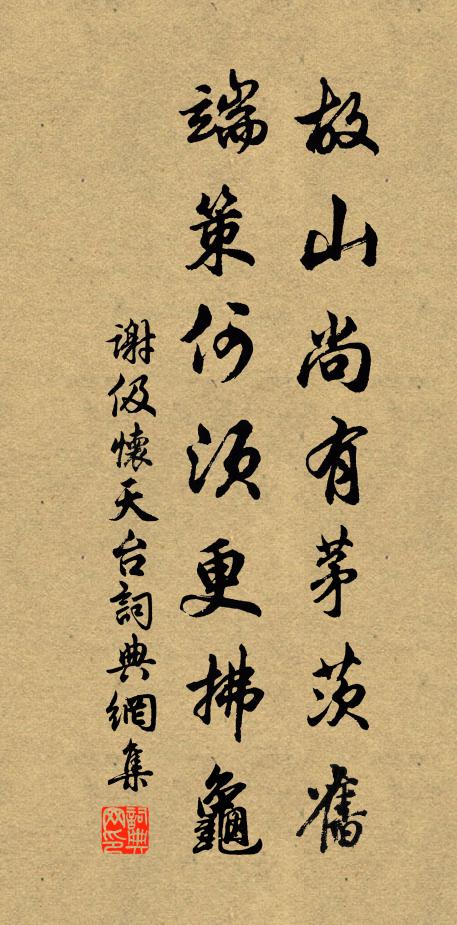 故山尚有茅茨舊
端策何須更拂龜
謝伋懷天台詞典網集
詞典網印